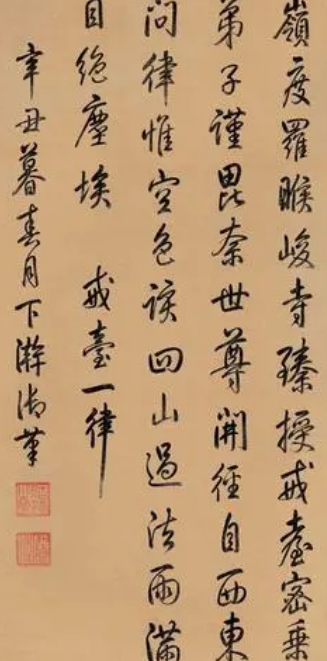 嶺度羅睺峻寺臻授戒臺密乘
弟子謹毘奈世尊開徑自西東
問律惟空色談四山過法雨滿
目絶塵埃　戒臺一律
辛丑暮春月下澣御筆